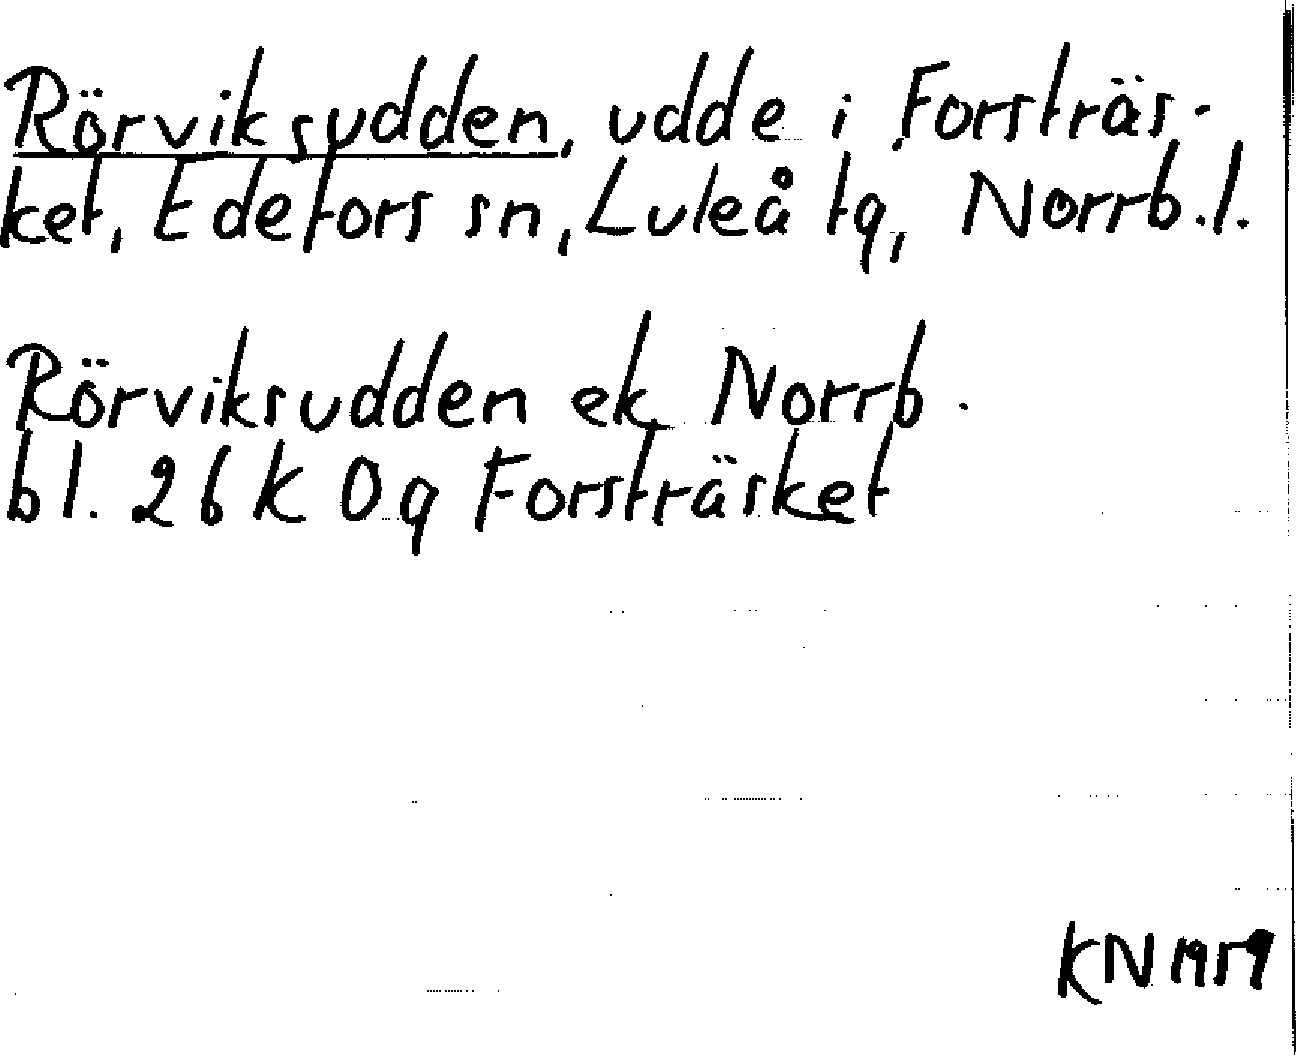 Rörviksudden, udde i Forsträs-
ket, Edefors sn, Luleå tg, Norrb.l.
Rörviksudden ek Norrb.
bl. 26 K 0g Forsträsket
KN 1959